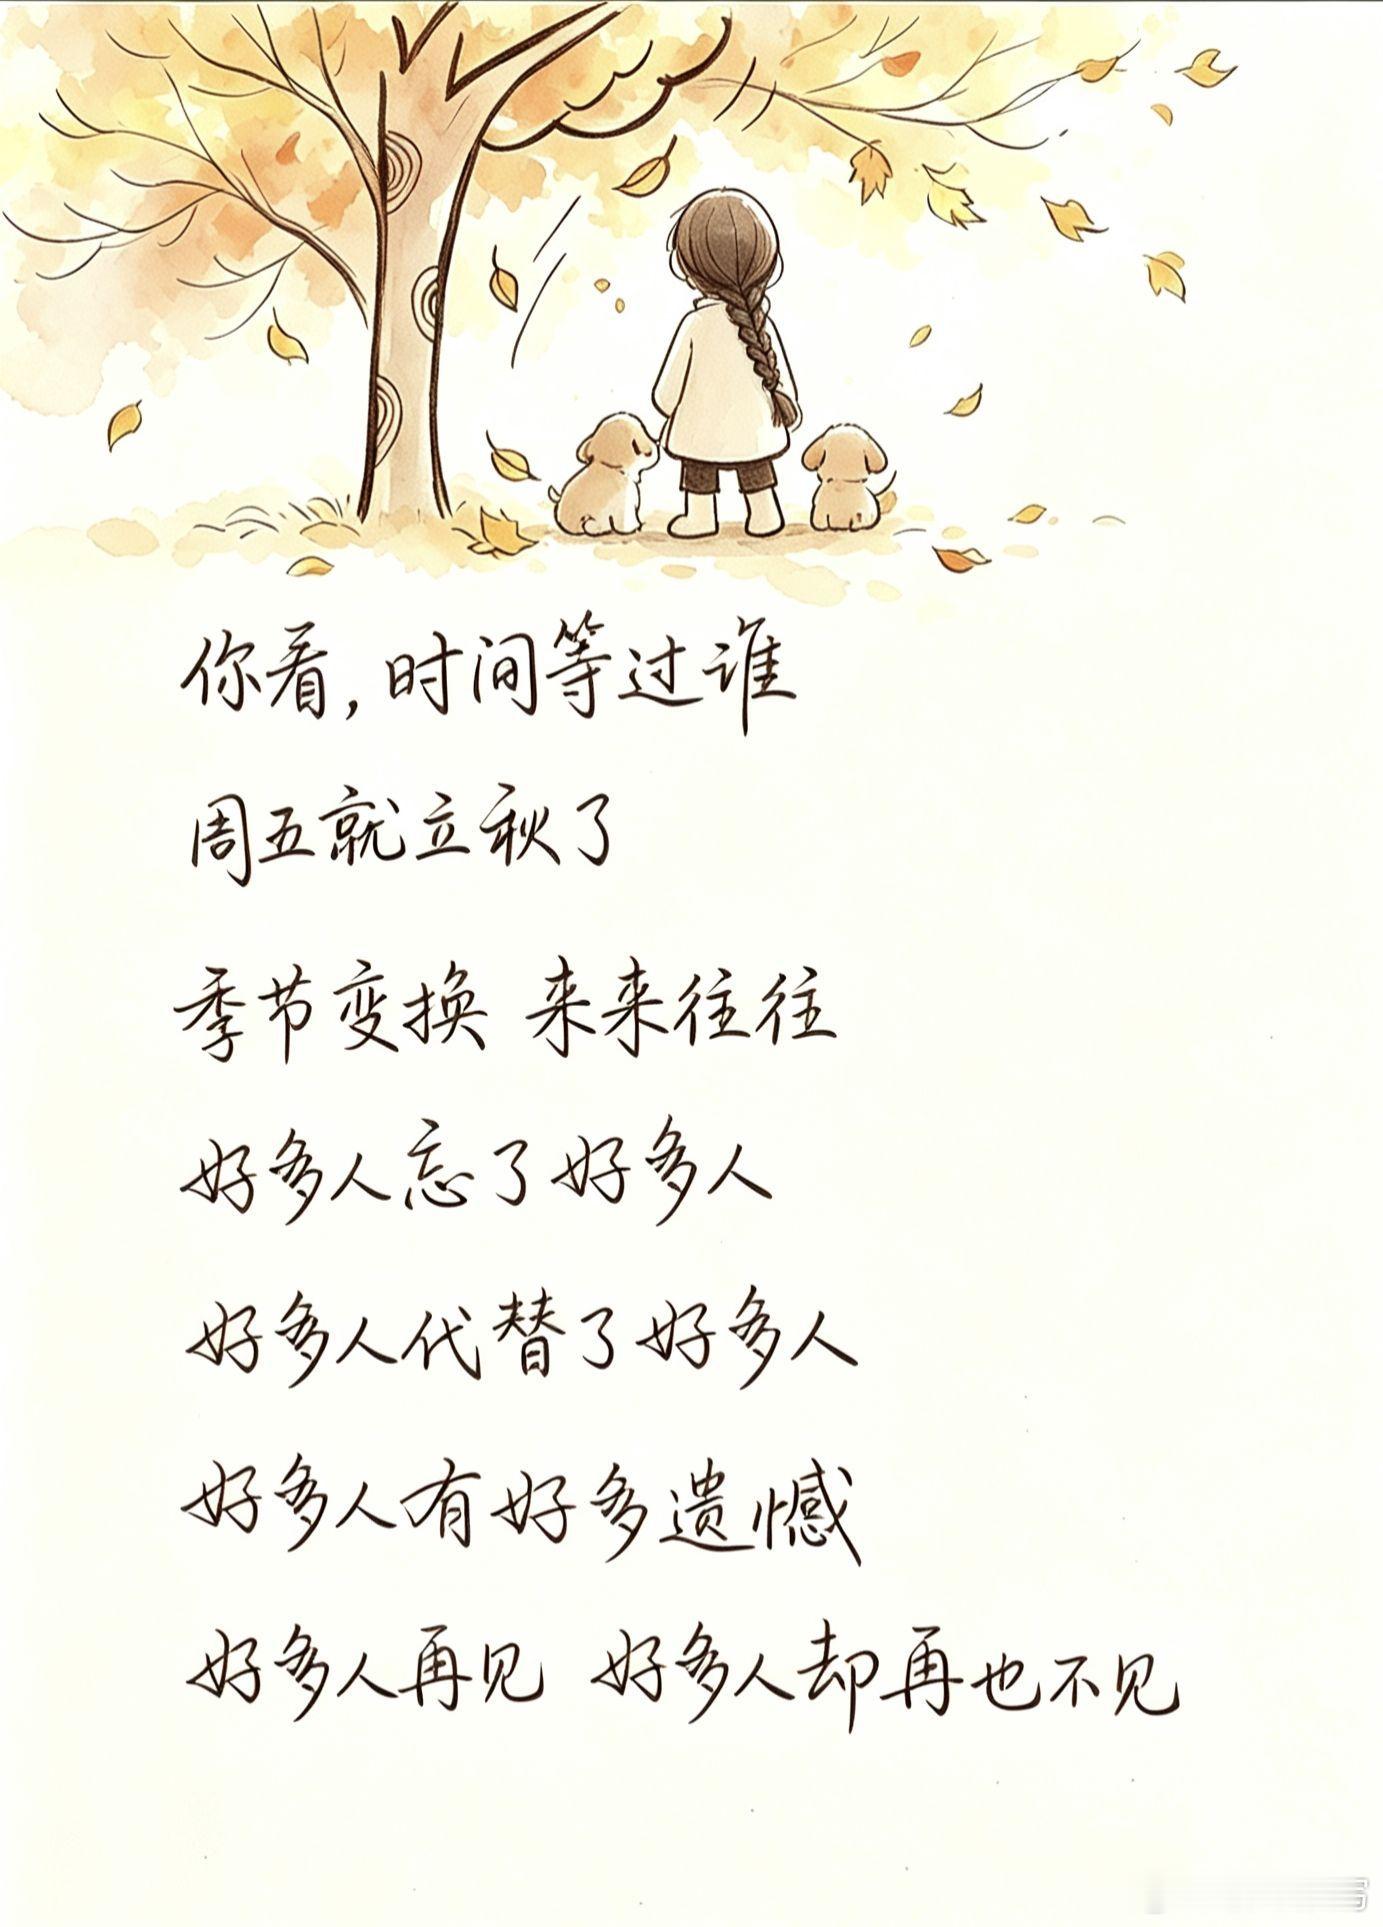 你看,时间等过谁
周五就立秋了
季节变换 来来往往
好多人忘了好多人
好多人代替了好多人
好多人有好多遗憾
好多人再见 好多人却再也不见